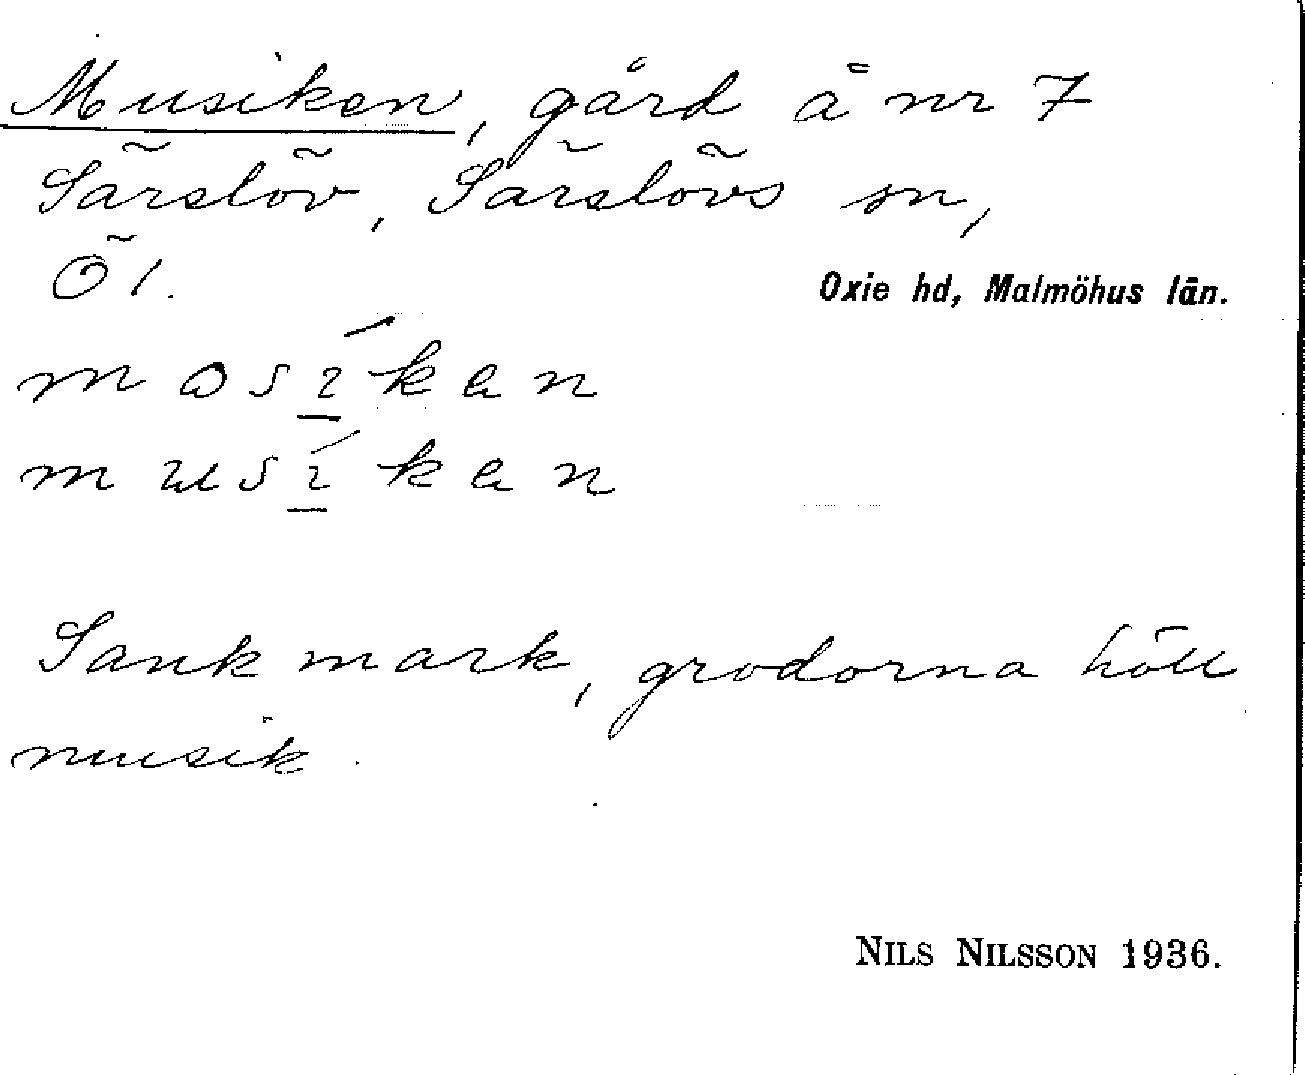 Musiken, gård å nr 7
Särslöv, Särslövs sn,
Ö1.
Oxie hd, Malmöhus län.
mosíkan
musíkan
Sank mark, grodorna höll
musik.
NILS NILSSON 1936.